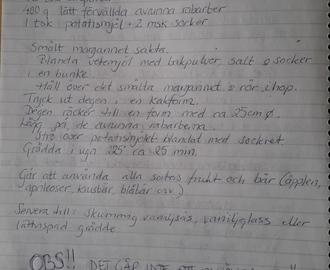 400 g lätt förvällda avrunna rabarber
1 tsk potatismjöl + 2 msk socker
Smält margarinet sakta.
Blanda vetemjöl med bakpulver salt o socker
i en bunke
Häll över det smälta margarinet o rör ihop.
Tryck ut degen i en kakform.
Degen räcker till en form med ca 25cm ø.
Lägg på de avrunna rabarberna.
Strö över potatismjölet blandat med sockret
Grädda i ugn 225° ca 25 min.
Går att använda alla sorters frukt och bär (äpplen,
aprikoser, krusbär, blåbär osv)
Servera till: skummig vaniljsås, vaniljglass eller
lättvispad grädde.
OBS!! DET GÅR INTE ATT